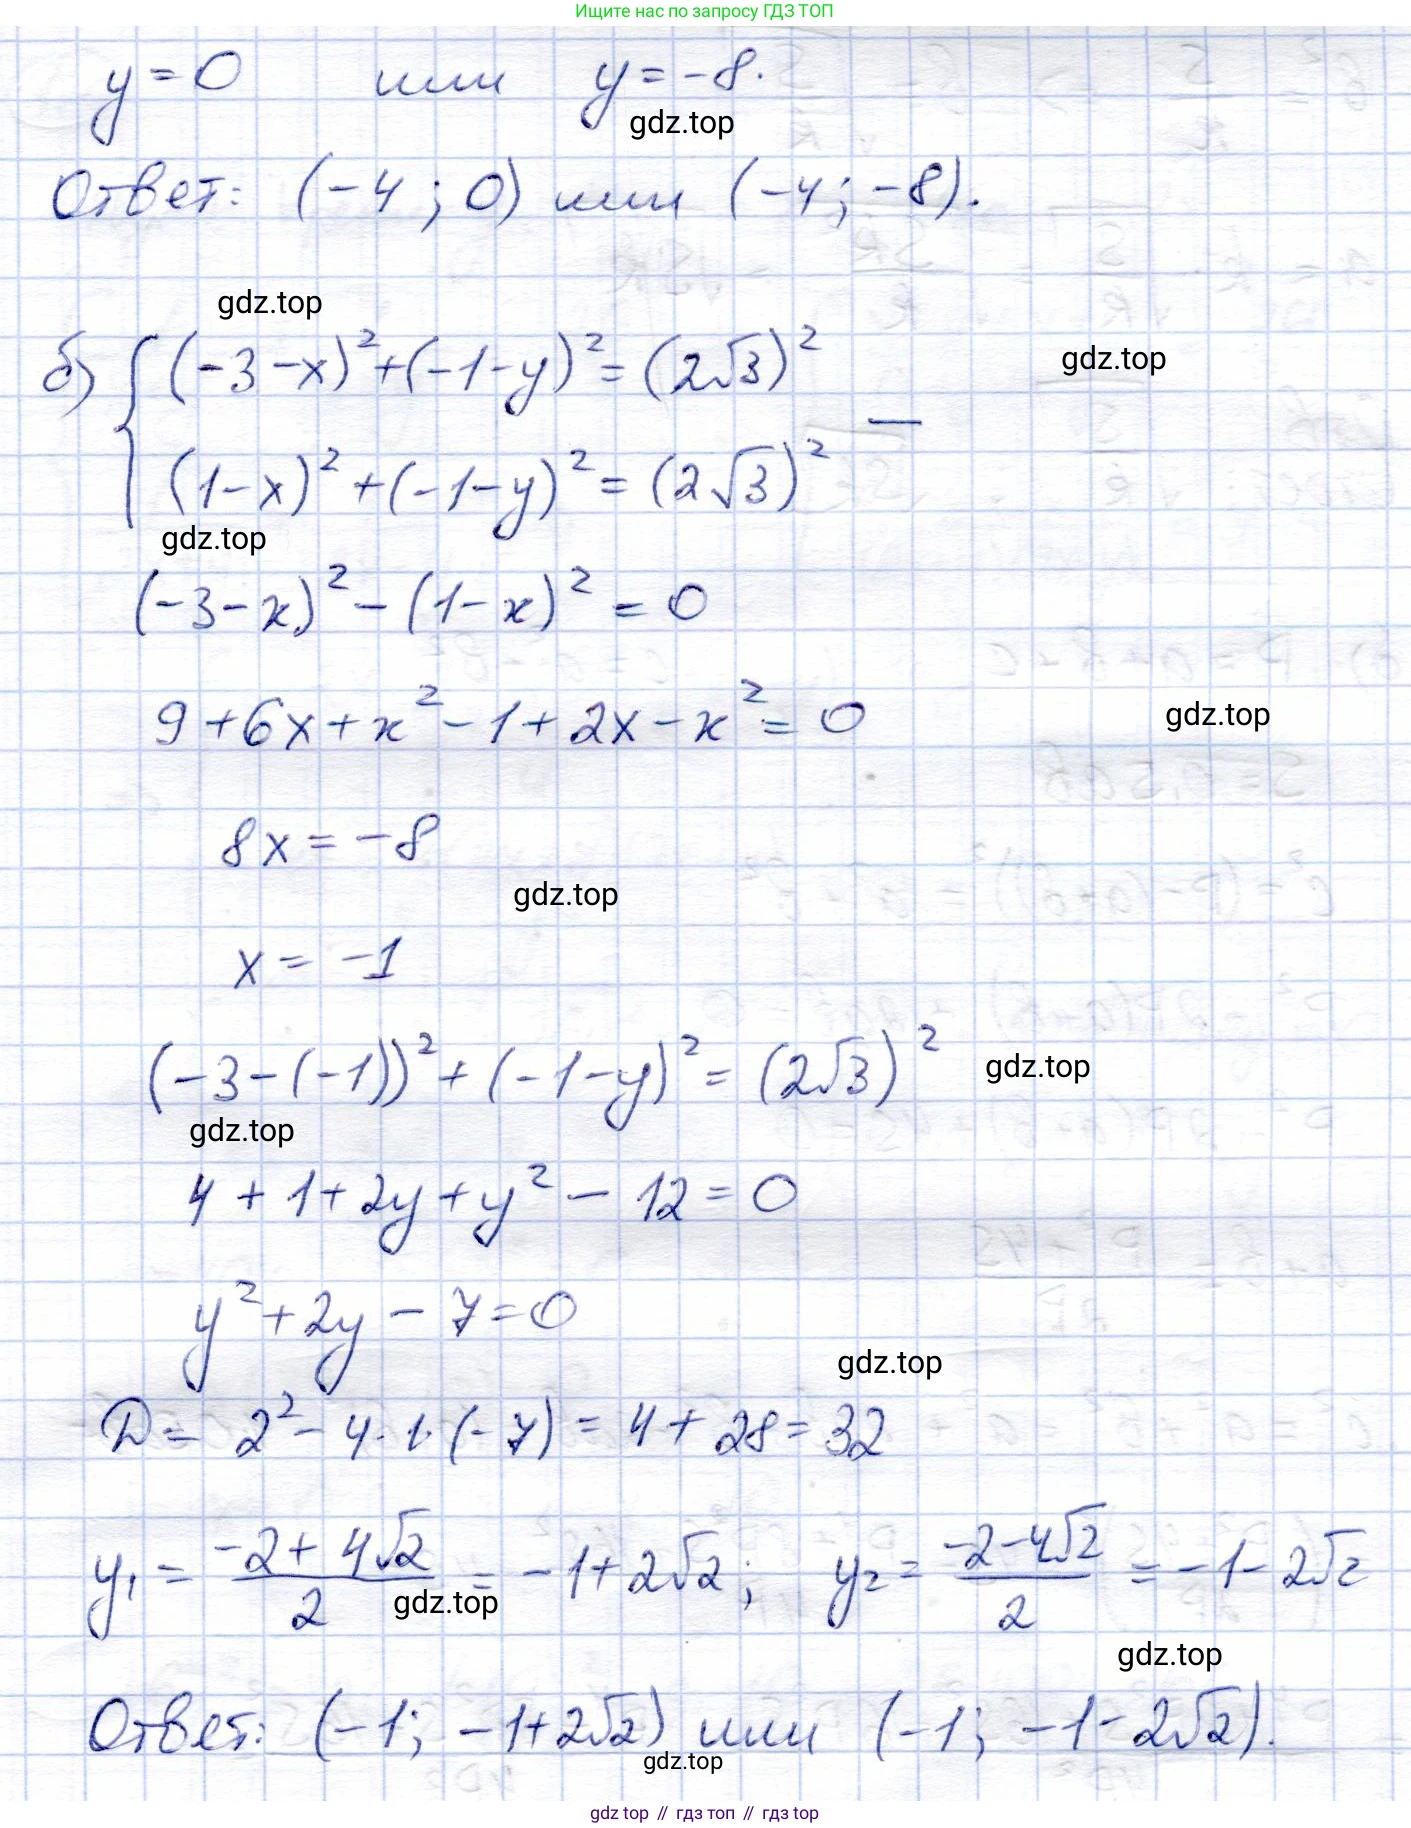 Ищите нас по запросу ГДЗ ТОП
y = 0 или y = -8.
gdz.top
Ответ: (-4; 0) или (-4; -8).
gdz.top
б) { (-3-x)² + (-1-y)² = (2√3)²
gdz.top
—
(1-x)² + (-1-y)² = (2√3)²
gdz.top
(-3-x)² - (1-x)² = 0
9 + 6x + x² - 1 + 2x - x² = 0
gdz.top
8x = -8
gdz.top
x = -1
(-3-(-1))² + (-1-y)² = (2√3)²
gdz.top
gdz.top
4 + 1 + 2y + y² - 12 = 0
y² + 2y - 7 = 0
gdz.top
D = 2² - 4·1·(-7) = 4 + 28 = 32
y₁ = (-2+4√2)/2 = -1+2√2; y₂ = (-2-4√2)/2 = -1-2√2
gdz.top
gdz.top
Ответ: (-1; -1+2√2) или (-1; -1-2√2).
gdz.top
gdz top // гдз топ // гдз top